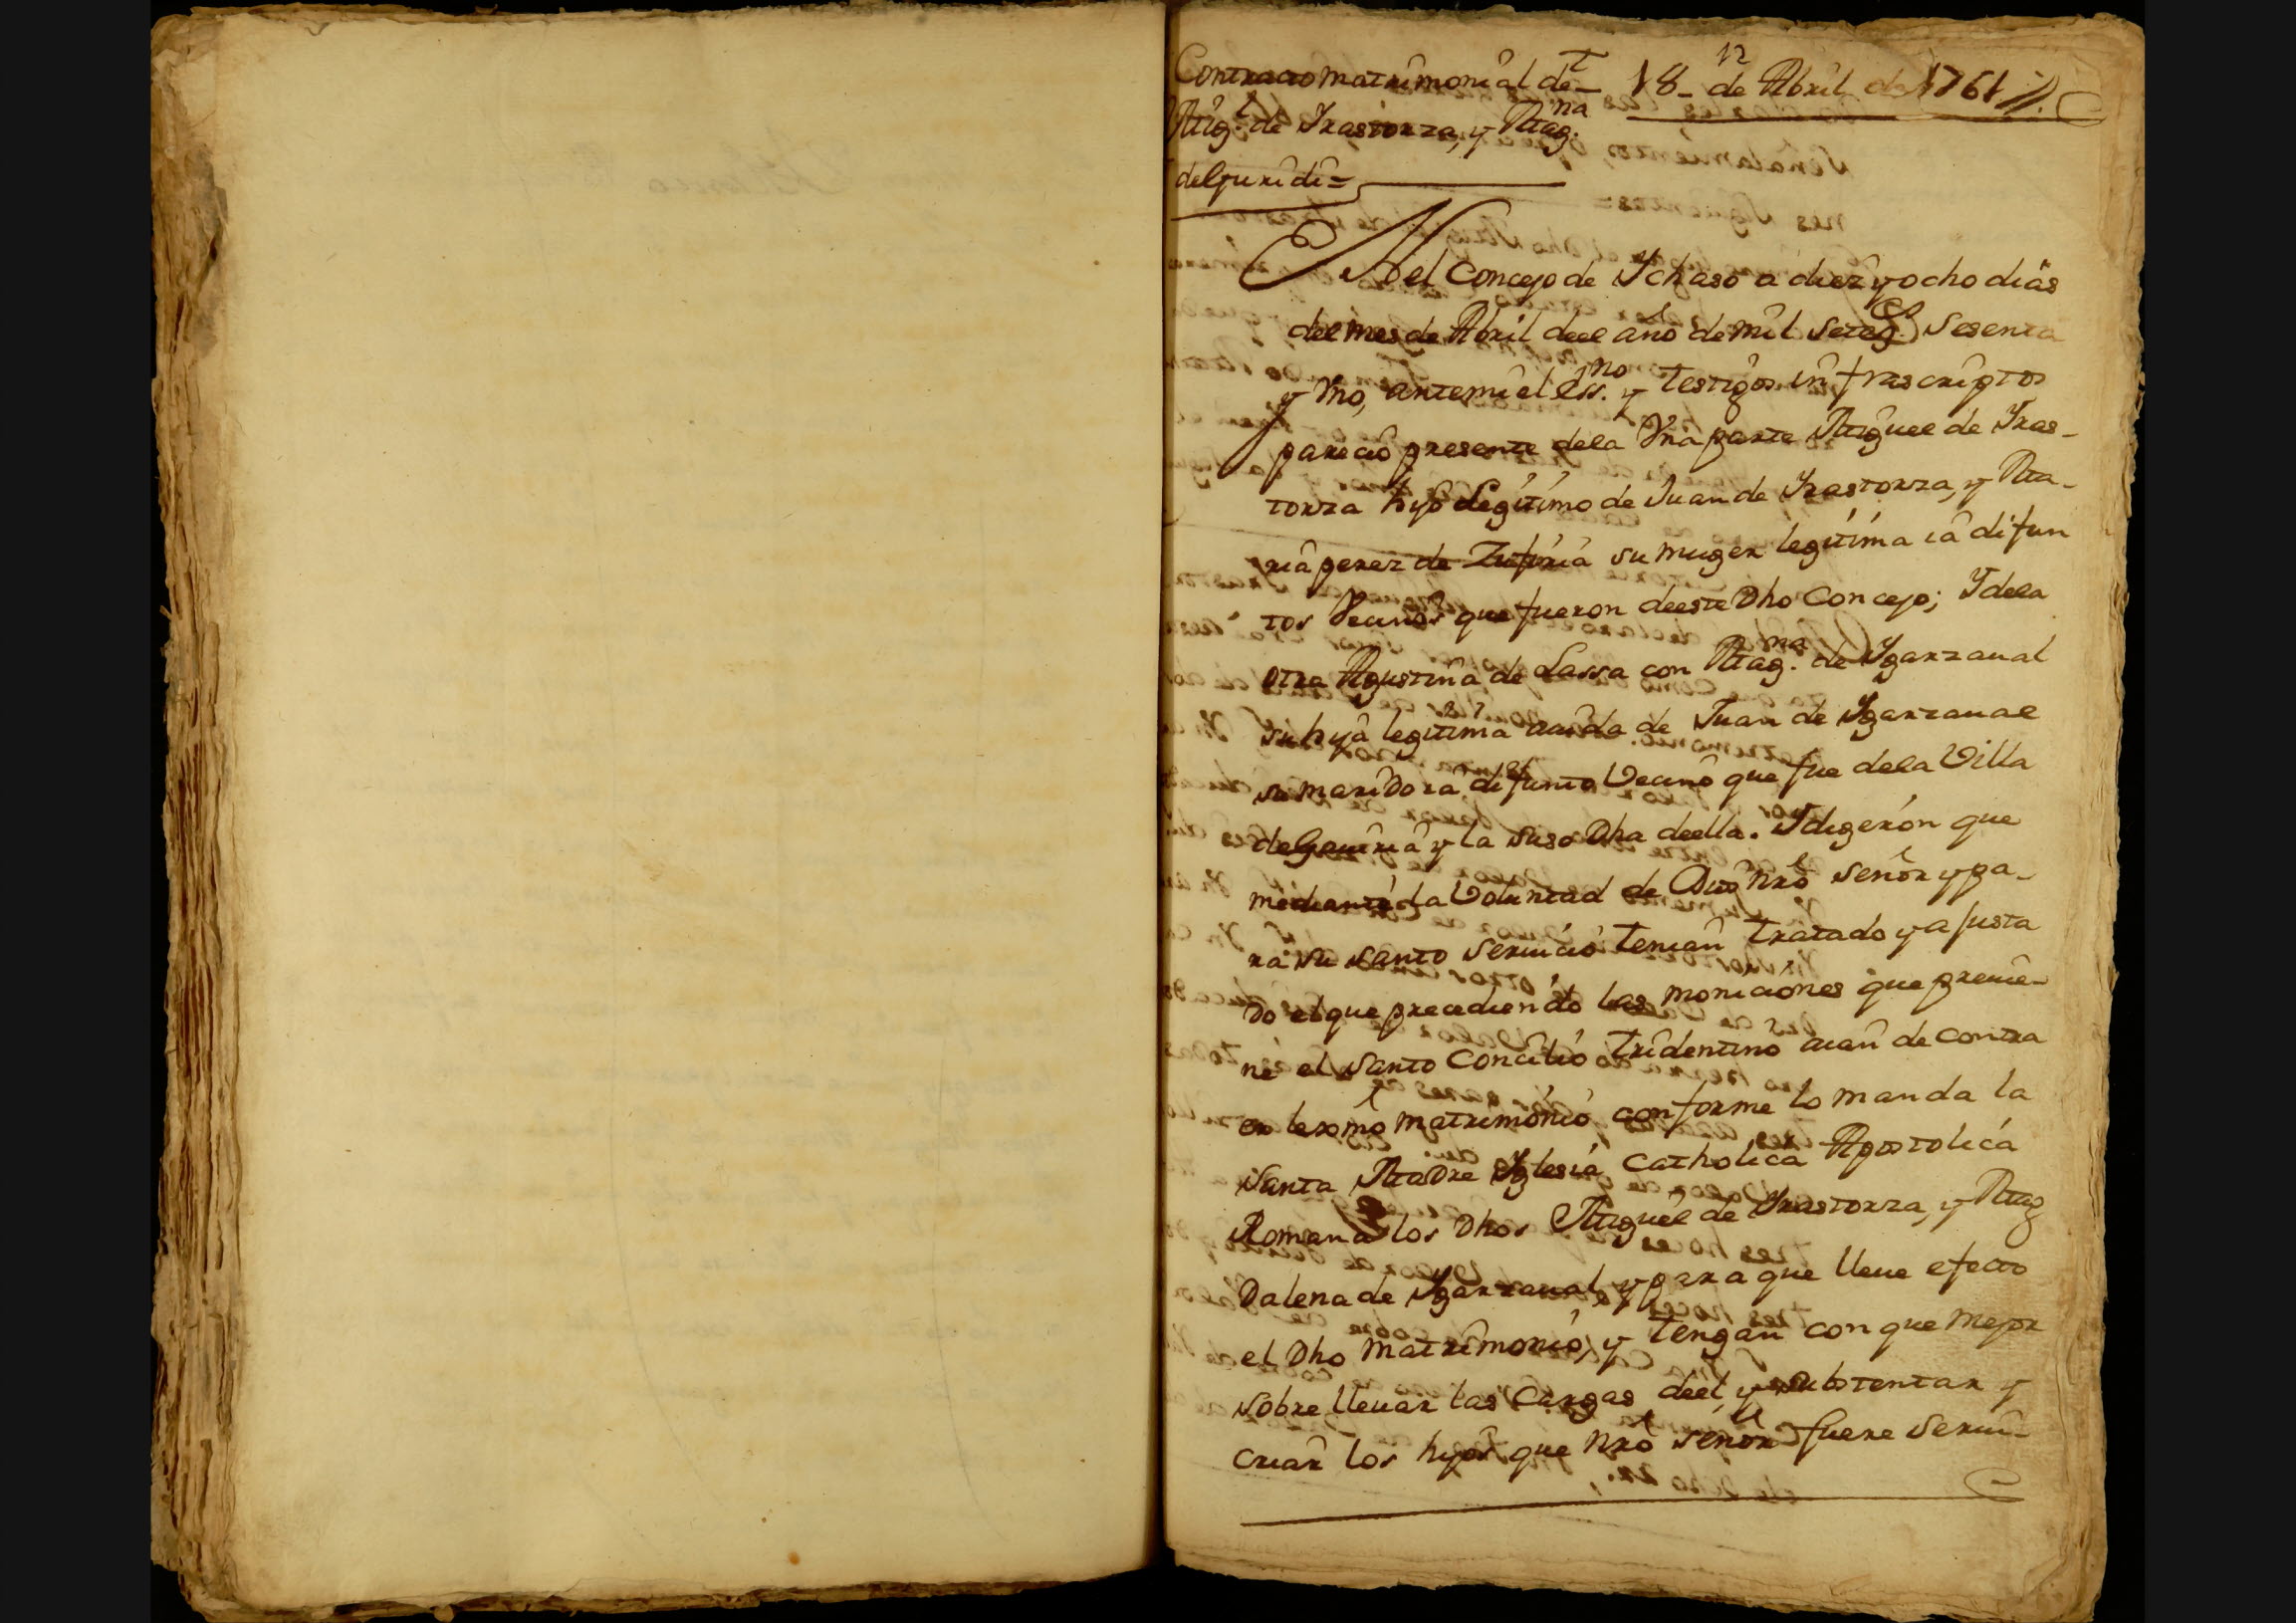 12
Contracto matrimonial de_ 18_ de Abril de 1761
Mig.l de Yrastorza, y Mag.na
del
En el Concejo de Ychaso a diez y ocho dias
del mes de Abril deel año de mil seteg.os sesenta
y Vno, ante mi el ess.no y testigos infrascriptos
parecio presente dela Vna parte Miguel de Yras_
torza hijo Legitimo de Juan de Yrastorza, y Ma_
ria perez de Zufiria su muger legitima ia difun
tos Vecinos que fueron deeste Dho Concejo; Y dela
otra Agustina de Lassa con Mag.na de Ygarzaual
su hija legitima auida de Juan de Ygarzaual
su marido ia difunto Vecino que fue dela Villa
de Gauiria y la suso Dha deella. Y digeron que
mediante la Voluntad de Dios nro señor y pa_
ra su santo seruicio tenian tratado y ajusta
do el que precediendo las moniciones que preuie_
ne el santo Concilio tridentino aian de contra
er lexmo matrimonio conforme lo manda la
Santa Madre Yglesia Catholica Apostolica
Romana los Dhos Miguel de Yrastorza, y Mag
dalena de Ygarzaual, y para que lleue efecto
el Dho matrimonio, y tengan con que mejor
sobre lleuar las Cargas deel, y substentar y
criar los hijos que nro señor fuere serui_